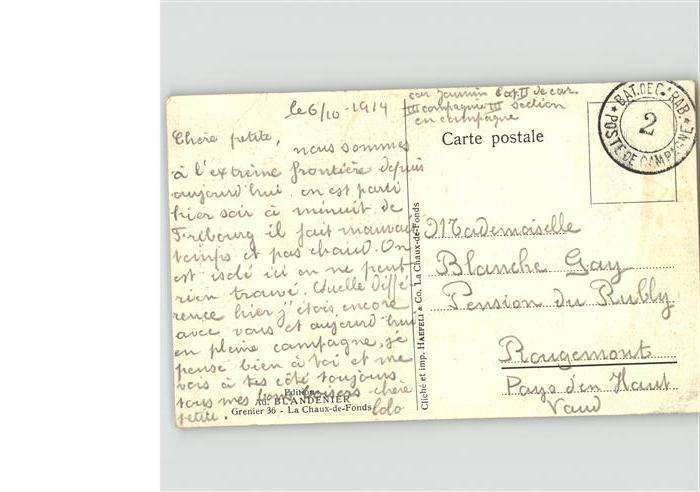 le 6/10 - 1914
car Jaunin bat II de car.
III compagnie III section
en campagne
Carte postale
BAT. DE CARAB.
2
POSTE DE CAMPAGNE
Chère petite,
nous sommes
à l'extrème frontière depuis
aujourd'hui, on est parti
hier soir à minuit de
Fribourg il fait mauvais
temps et pas chaud. On
est isolé ici on ne peut
rien trouvé. Quelle diffé-
rence hier j'étois encore
avec vous et aujourd'hui
en pleine campagne, je
pense bien à toi et me
vois à tes côté toujours
tous mes bons baisers chère
petite. Lolo
Edition
Ad. BLANDENIER
Grenier 36 - La Chaux-de-Fonds
Cliché et imp. HAEFELI & Co. La Chaux-de-Fonds
Mademoiselle
Blanche Gay
Pension du Rubly
Rougemont
Pays d'en Haut
Vaud